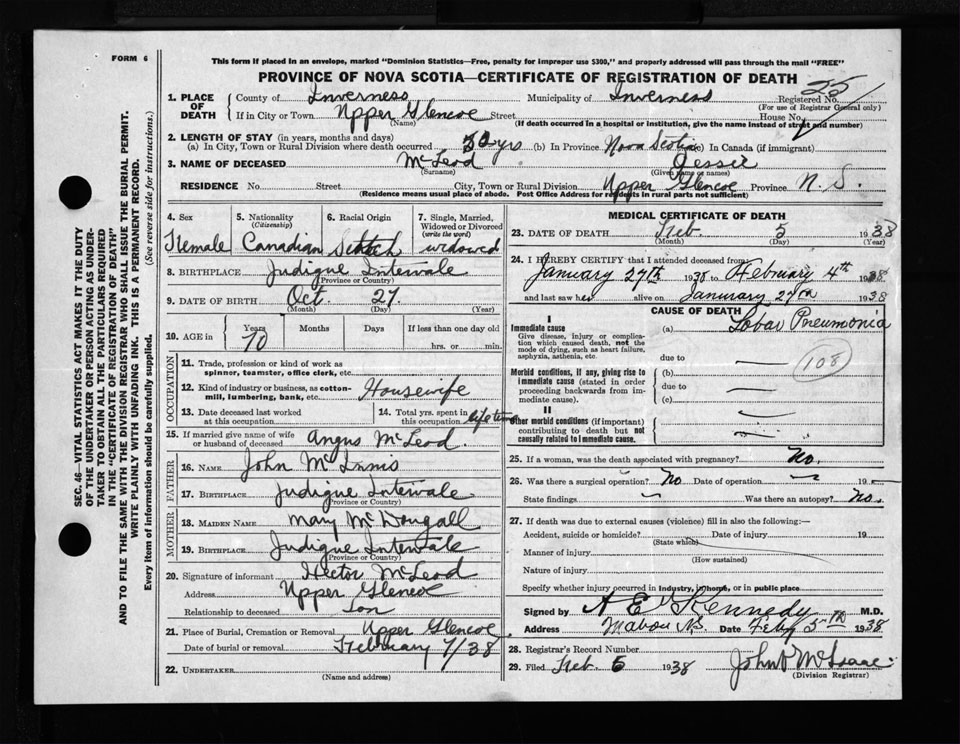 FORM 6
This form if placed in an envelope, marked "Dominion Statistics—Free, penalty for improper use $300," and properly addressed will pass through the mail "FREE"
PROVINCE OF NOVA SCOTIA—CERTIFICATE OF REGISTRATION OF DEATH
25
1. PLACE OF DEATH { County of Inverness Municipality of Inverness Registered No.
(For use of Registrar General only)
If in City or Town Upper Glencoe Street House No.
(Name) (If death occurred in a hospital or institution, give the name instead of street and number)
2. LENGTH OF STAY (in years, months and days)
(a) In City, Town or Rural Division where death occurred 50 yrs (b) In Province Nova Scotia (c) In Canada (if immigrant)
3. NAME OF DECEASED McLeod Jessie
(Surname) (Given name or names)
RESIDENCE No. Street City, Town or Rural Division Upper Glencoe Province N. S.
(Residence means usual place of abode. Post Office Address for residents in rural parts not sufficient)
4. Sex Female
5. Nationality (Citizenship) Canadian
6. Racial Origin Scotch
7. Single, Married, Widowed or Divorced (write the word) widowed
8. BIRTHPLACE Judique Intervale
(Province or Country)
9. DATE OF BIRTH Oct. 27.
(Month) (Day) (Year)
10. AGE in { Years 70 Months Days If less than one day old
hrs. or min.
OCCUPATION
11. Trade, profession or kind of work as
spinner, teamster, office clerk, etc.
12. Kind of industry or business, as cotton-
mill, lumbering, bank, etc. Housewife
13. Date deceased last worked
at this occupation
14. Total yrs. spent in
this occupation lifetime
15. If married give name of wife
or husband of deceased Angus McLeod.
FATHER
16. NAME John McInnis
17. BIRTHPLACE Judique Intervale
(Province or Country)
MOTHER
18. MAIDEN NAME Mary McDougall
19. BIRTHPLACE Judique Intervale
(Province or Country)
20. Signature of informant Hector McLeod
Address Upper Glencoe
Relationship to deceased Son
21. Place of Burial, Cremation or Removal Upper Glencoe
Date of burial or removal February 7/38
22. UNDERTAKER
(Name and address)
MEDICAL CERTIFICATE OF DEATH
23. DATE OF DEATH Feb. 5 1938
(Month) (Day) (Year)
24. I HEREBY CERTIFY that I attended deceased from
January 27th 1938 to February 4th 1938
and last saw her alive on January 27th 1938
CAUSE OF DEATH
I
Immediate cause (a) Lobar Pneumonia
Give disease, injury or complica-
tion which caused death, not the
mode of dying, such as heart failure,
asphyxia, asthenia, etc.
due to
108
Morbid conditions, if any, giving rise to
immediate cause (stated in order
proceeding backwards from im-
mediate cause).
(b)
due to
(c)
II
Other morbid conditions (if important)
contributing to death but not
causally related to immediate cause.
25. If a woman, was the death associated with pregnancy? No.
26. Was there a surgical operation? No Date of operation 19
State findings Was there an autopsy? No.
27. If death was due to external causes (violence) fill in also the following:—
Accident, suicide or homicide? Date of injury 19
(State which)
Manner of injury
(How sustained)
Nature of injury
Specify whether injury occurred in industry, in home, or in public place
Signed by A E Kennedy M.D.
Address Mabou N.S. Date Feby 5th 1938
28. Registrar's Record Number
29. Filed Feb 5 1938 John McIsaac
(Division Registrar)
SEC. 46—VITAL STATISTICS ACT MAKES IT THE DUTY
OF THE UNDERTAKER OR PERSON ACTING AS UNDER-
TAKER TO OBTAIN ALL THE PARTICULARS REQUIRED
IN THE "CERTIFICATE OF REGISTRATION OF DEATH"
AND TO FILE THE SAME WITH THE DIVISION REGISTRAR WHO SHALL ISSUE THE BURIAL PERMIT.
WRITE PLAINLY WITH UNFADING INK. THIS IS A PERMANENT RECORD.
Every item of information should be carefully supplied. (See reverse side for instructions.)